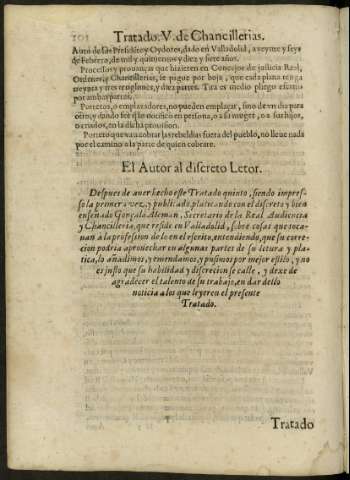 Tratado. V. de Chancillerias.
Auto de los Presidẽte y Oydores, dado en Valladolid, a veynte y seys
de Febrero, de mil y quinientos y diez y siete años.
Processos y prouanças que hizieren en Concejos de justicia Real,
Ordenes, y Chancillerias, se pague por hoja, que cada plana tenga
treynta y tres renglones, y diez partes. Tira es medio pliego escrito
por ambas partes.
Porteros, o emplazadores, no pueden emplaçar, sino de vn dia para
otro, y dando fee q̃ lo notificò en persona, o a su muger, o a sus hijos,
o criados, en la dicha prouision.
Portero que va a cobrar las rebeldias fuera del pueblo, no lleue nada
por el camino a la parte de quien cobrare.
El Autor al discreto Letor.
Despues de auer hecho este Tratado quinto, siendo impres-
so la primera vez, y publicado, platicando con el discreto y bien
enseñado Gonçalo Aleman, Secretario de la Real Audiencia
y Chancilleria, que reside en Valladolid, sobre cosas que toca-
uan a la profession de lo en el escrito, entendiendo, que su corre-
cion podria aprouechar en algunas partes de su letura y pla-
tica, lo añadimos, y emendamos, y pusimos por mejor estilo, y no
es justo que su habilidad y discrecion se calle, y dexe de
agradecer el talento de su trabajo, en dar dello
noticia a los que leyeren el presente
Tratado.
Tratado